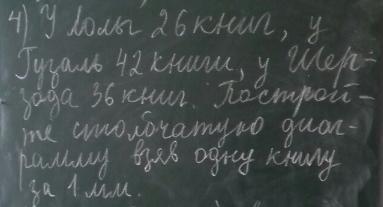 4) У Лолы 26 книг, у
Гузаль 42 книги, у Шер-
зода 36 книг. Построй-
те столбчатую диаг-
рамму взяв одну книгу
за 1 мм.